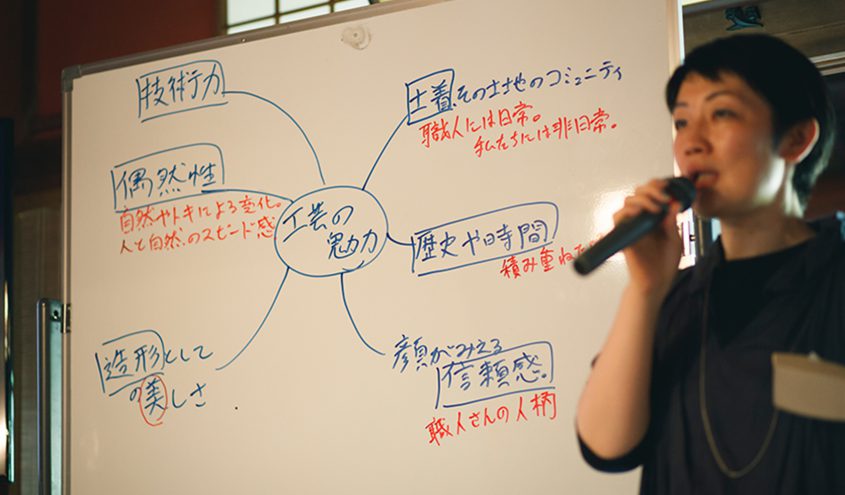 技術力
偶然性
自然やトキによる変化。
人と自然のスピード感
造形として
の美しさ
工芸の
魅力
土着、その土地のコミュニティ
職人には日常。
私たちには非日常。
歴史や時間
積み重ね
顔がみえる
信頼感。
職人さんの人柄